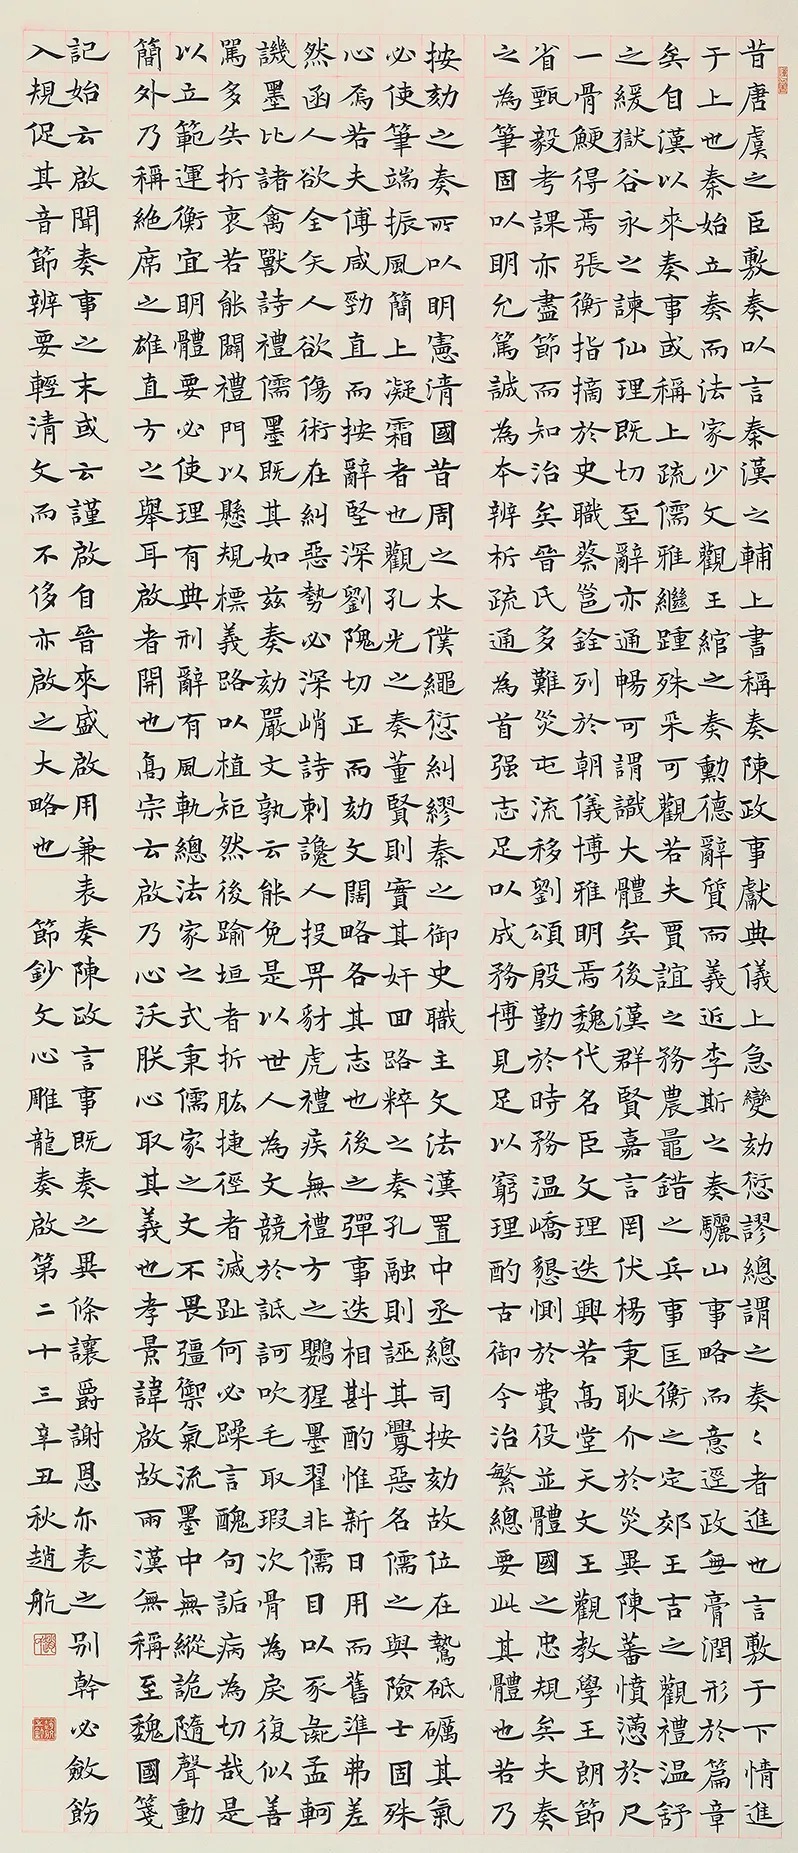 昔唐虞之臣敷奏以言秦漢之輔上書稱奏陳政事獻典儀上急變劾愆謬總謂之奏〻者進也言敷于下情進
于上也秦始立奏而法家少文觀王綰之奏勳德辭質而義近李斯之奏驪山事略而意逕政無膏潤形於篇章
矣自漢以來奏事或稱上疏儒雅繼踵殊采可觀若夫賈誼之務農鼂錯之兵事匡衡之定郊王吉之觀禮溫舒
之緩獄谷永之諫仙理既切至辭亦通暢可謂識大體矣後漢群賢嘉言罔伏楊秉耿介於災異陳蕃憤懣於尺
一骨鯁得焉張衡指摘於史職蔡邕銓列於朝儀博雅明焉魏代名臣文理迭興若高堂天文王觀教學王朗節
省甄毅考課亦盡節而知治矣晉氏多難災屯流移劉頌殷勤於時務溫嶠懇惻於費役並體國之忠規矣夫奏
之為筆固以明允篤誠為本辨析疏通為首强志足以成務博見足以窮理酌古御今治繁總要此其體也若乃
按劾之奏所以明憲清國昔周之太僕繩愆糾繆秦之御史職主文法漢置中丞總司按劾故位在鷙砥礪其氣
必使筆端振風簡上凝霜者也觀孔光之奏董賢則實其奸回路粹之奏孔融則誣其釁惡名儒之與險士固殊
心焉若夫傅咸勁直而按辭堅深劉隗切正而劾文闊略各其志也後之彈事迭相斟酌惟新日用而舊準弗差
然函人欲全矢人欲傷術在糾惡勢必深峭詩刺讒人投畀豺虎禮疾無禮方之鸚猩墨翟非儒目以豕彘孟軻
譏墨比諸禽獸詩禮儒墨既其如茲奏劾嚴文孰云能免是以世人為文競於詆訶吹毛取瑕次骨為戾復似善
罵多失折衷若能闢禮門以懸規標義路以植矩然後踰垣者折肱捷徑者滅趾何必躁言醜句詬病為切哉是
以立範運衡宜明體要必使理有典刑辭有風軌總法家之式秉儒家之文不畏彊禦氣流墨中無縱詭隨聲動
簡外乃稱絕席之雄直方之舉耳啟者開也高宗云啟乃心沃朕心取其義也孝景諱啟故兩漢無稱至魏國箋
記始云啟聞奏事之末或云謹啟自晉來盛啟用兼表奏陳政言事既奏之異條讓爵謝恩亦表之別幹必斂飭
入規促其音節辨要輕清文而不侈亦啟之大略也 節鈔文心雕龍奏啟第二十三辛丑秋趙航